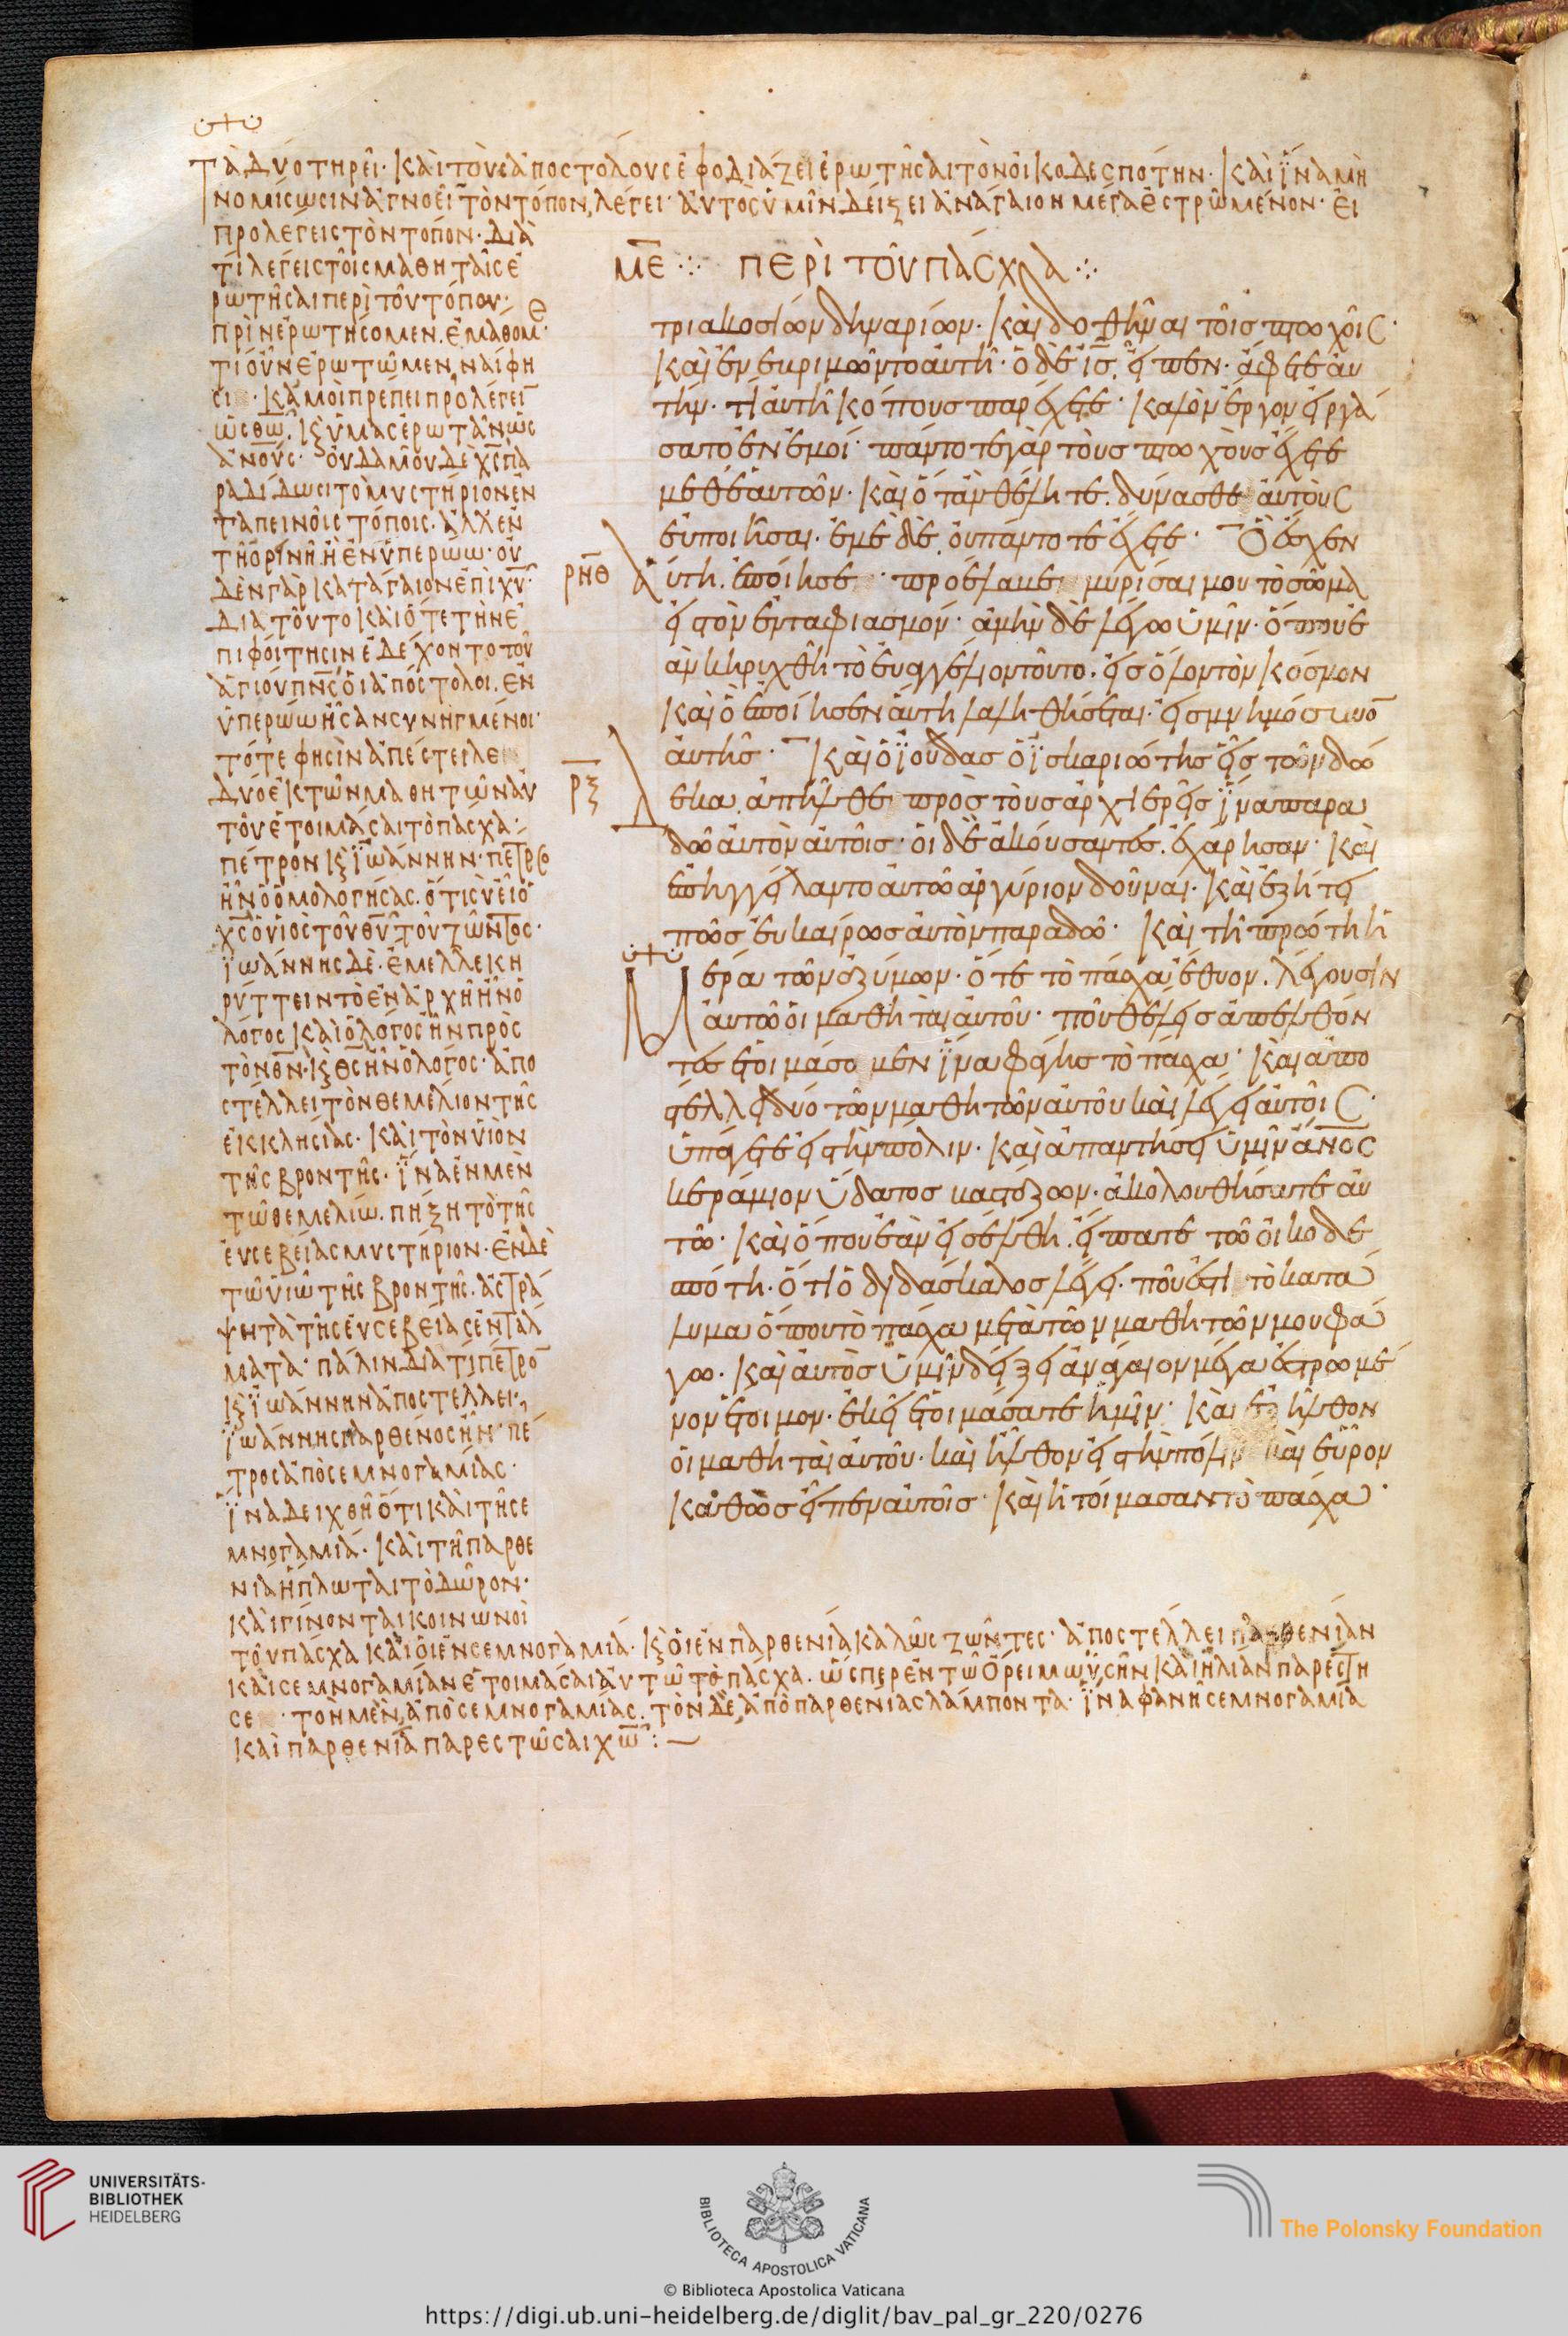 Τὰ δύο τηρεῖ· καὶ τοὺς ἀποστόλους ἐφοδιάζει ἐρωτῆσαι τὸν οἰκοδεσπότην· καὶ ἵνα μὴ
νομίσωσιν ἀγνοεῖ τὸν τόπον, λέγει· αὐτὸς ὑμῖν δείξει ἀνάγαιον μέγα ἐστρωμένον· εἰ
προλέγεις τὸν τόπον· διὰ
τί λέγεις τοῖς μαθηταῖς ἐ
ρωτῆσαι περὶ τοῦ τόπου;
πρὶν ἐρωτήσομεν. ἐμάθομ
τί οὖν ἐρωτῶμεν, ναί φη
σι· κἀμοὶ πρέπει προλέγει
κ(αὶ) ὑμᾶς ἐρωτᾶν ὡς
ἀνους· οὐδαμοῦ δὲ χς πα
ραδίδωσι τὸ μυστήριον ἐν
ταπεινοῖς τόποις· ἀλλ' ἐν
τῇ ὀρινῇ. ἢ ἐν ὑπερώω· οὐ
δὲν γὰρ κατάγαιον ἐπὶ χυ·
διὰ τοῦτο καὶ ὅτε τὴν ἐ
πιφοίτησιν ἐδέχοντο τοῦ
ἁγίου πνς οἱ ἀπόστολοι. ἐν
ὑπερώω ἦσαν συνηγμένοι·
τότε φησὶν ἀπέστειλε
δύο ἐκ τῶν μαθητῶν αὐ
τοῦ ἑτοιμάσαι τὸ πάσχα·
πέτρον κ(αὶ) ἰωάννην· πέτρος
ἦν ὁ ὁμολογήσας. ὅτι σὺ εἶ ὁ
χς ὁ υἱὸς τοῦ θυ τοῦ ζῶντος·
ἰωάννης δὲ· ἔμελλε κη
ρύττειν τὸ ἐν ἀρχῇ ἦν ὁ
λόγος καὶ ὁ λόγος ἦν πρὸς
τὸν θν· κ(αὶ) θς ἦν ὁ λόγος· ἀπο
στέλλει τὸν θεμέλιον τῆς
ἐκκλησίας· καὶ τὸν υἱὸν
τῆς βροντῆς· ἵνα ἐν μὲν
τῶ θεμελίω. πήξη τὸ τῆς
εὐσεβείας μυστήριον· ἐν δὲ
τῶ υἱῶ τῆς βροντῆς. ἀστρά
ψη τὰ τῆς εὐσεβείας ἐντάλ
ματα· πάλιν διατί πέτρον
κ(αὶ) ἰωάννην ἀποστέλλει;
ἰωάννης παρθένος ἦν· πέ
τρος ἀπὸ σεμνογαμίας·
ἵνα δειχθῆ ὅτι καὶ τῆ σε
μνογαμία· καὶ τῆ παρθε
νία ἥπλωται τὸ δῶρον·
καὶ γίνονται κοινωνοὶ
τοῦ πάσχα καὶ οἱ ἐν σεμνογαμία· κ(αὶ) οἱ ἐν παρθενία καλῶς ζῶντες· ἀποστέλλει παρθενίαν
καὶ σεμνογαμίαν ἑτοιμάσαι αὐτῶ τὸ πάσχα. ὥσπερ ἐν τῶ ὄρει μωϋσῆν καὶ ἠλίαν παρέστη
σε· τὸν μὲν, ἀπὸ σεμνογαμίας. τὸν δὲ, ἀπὸ παρθενίας λάμποντα· ἵνα φανῆ σεμνογαμία
καὶ παρθενία παρεστῶσαι χω:
ΜΕ ΠΕΡΙ ΤΟΥ ΠΑΣΧΑ
τριακοσίων δηναρίων· καὶ δοθῆναι τοῖς πτωχοῖς·
καὶ ἐνεβριμῶντο αὐτῆ· ὁ δὲ ις. εἶπεν· ἄφετε αὐ
τήν· τί αὐτῆ κόπους παρέχετε· καλὸν ἔργον εἰργά
σατο ἐν ἐμοί· πάντοτε γὰρ τοὺς πτωχοὺς ἔχετε
μεθ' ἑαυτῶν· καὶ ὅταν θέλητε. δύνασθε αὐτοὺς
εὐποιῆσαι. ἐμὲ δὲ. οὐ πάντοτε ἔχετε· Ὃ ἔσχεν
ΡΝΘ αὕτη. ἐποίησε· προέλαβε μυρίσαι μου τὸ σῶμα
εἰς τὸν ἐνταφιασμόν· ἀμὴν δὲ λέγω ὑμῖν· ὅπου ἐ
ὰν κηρυχθῆ τὸ εὐαγγέλιον τοῦτο. εἰς ὅλον τὸν κόσμον
καὶ ὃ ἐποίησεν αὕτη λαληθήσεται· εἰς μνημόσυνον
αὐτῆς· Καὶ ὁ ἰούδας ὁ ἰσκαριώτης εἷς τῶν δώ
ΡΞ δεκα. ἀπῆλθε πρὸς τοὺς ἀρχιερεῖς ἵνα παρα
δῶ αὐτὸν αὐτοῖς· οἱ δὲ ἀκούσαντες. ἐχάρησαν· καὶ
ἐπηγγείλαντο αὐτῶ ἀργύριον δοῦναι. καὶ ἐζήτει
πῶς εὐκαίρως αὐτὸν παραδῶ· Καὶ τῆ πρώτη ἡ
μέρα τῶν ἀζύμων. ὅτε τὸ πάσχα ἔθυον. λέγουσιν
αὐτῶ οἱ μαθηταὶ αὐτοῦ· ποῦ θέλεις ἀπελθόν
τες ἑτοιμάσομεν ἵνα φάγης τὸ πάσχα· καὶ ἀπο
στέλλει δύο τῶν μαθητῶν αὐτοῦ καὶ λέγει αὐτοῖς·
ὑπάγετε εἰς τὴν πόλιν. καὶ ἀπαντήσει ὑμῖν ἀνος
κεράμιον ὕδατος βαστάζων. ἀκολουθήσατε αὐ
τῶ· καὶ ὅπου ἐὰν εἰσέλθη. εἴπατε τῶ οἰκοδε
σπότη. ὅτι ὁ διδάσκαλος λέγει. ποῦ ἐστι τὸ κατά
λυμα ὅπου τὸ πάσχα μετὰ τῶν μαθητῶν μου φά
γω. καὶ αὐτὸς ὑμῖν δείξει ἀνάγαιον μέγα ἐστρωμέ
νον ἕτοιμον. ἐκεῖ ἑτοιμάσατε ἡμῖν· καὶ ἐξῆλθον
οἱ μαθηταὶ αὐτοῦ. καὶ ἦλθον εἰς τὴν πόλιν καὶ εὗρον
καθὼς εἶπεν αὐτοῖς· καὶ ἡτοίμασαν τὸ πάσχα·
UNIVERSITÄTS-
BIBLIOTHEK
HEIDELBERG
BIBLIOTECA APOSTOLICA VATICANA
The Polonsky Foundation
© Biblioteca Apostolica Vaticana
https://digi.ub.uni-heidelberg.de/diglit/bav_pal_gr_220/0276